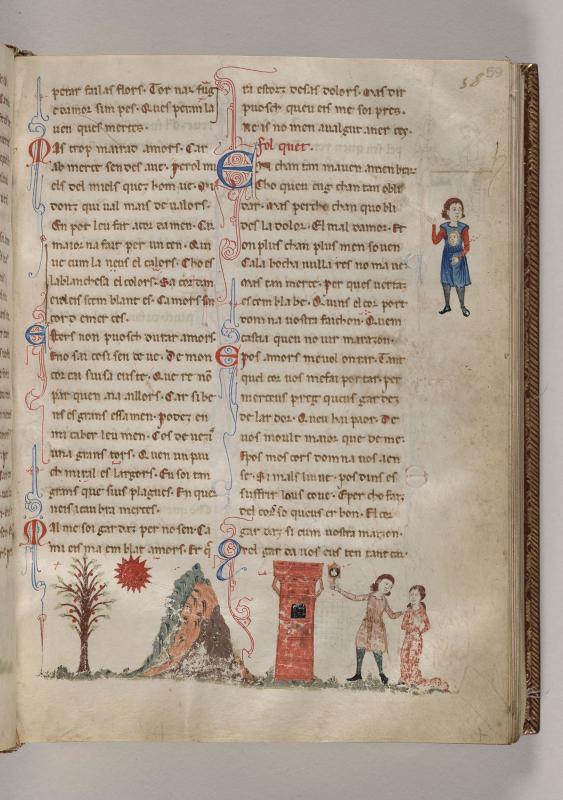 58 59
perar failas flors. Tor nar fug
edamor sim pes. Ques petan la
uen ques merces.
Mas trop mairad amors. Car
ab merce sen des aue. perol mi
els del miels quez hom ue. Mi
donz qui ual mais de ualors.
En pot leu far acor damen. Ca
maior na fait per un cen. Qui
ue cum la neus el calors. Cho es
la blanchesa el colors. Sa cor dan
em
cord emer ces.
Esters non puosch durar amors.
Eno sai cosi sen de ue. De mon
cor cui suisa enste. Que re no
par quen aia aillors. Car si be
us es grans essamen. Podez en
mi caber leu men. Cos de uezi
una grans tors. Quen un pau
ch miral es largors. En soi tan
grans que sius plagues. En que
neis iau bra merces.
Mal me soi gardaz per no sen. Ca
mi eis ma em blat amors. Er q
ra estorz desas dolors. Mas dir
puosch queu eis me soi pres.
ne is no men aualgut aner ces.
fol quet.
En chan tan mauen amen brar
Cho queu cug chan tan obli
dar. Mas perche chan quo bli
des la dolor. El mal damor. Et
on plus chan plus men souen
Cala bocha nulla res no ma ue
Mais tan merce. per ques uerta
es sem bla be. Quins el cor port
dom na uostra faichon. Quem
castia queu no uir marazon.
Epos amors me uol onrar. Tant
quel cor uos me fai portar. per
merceus preg queus gar dez
de lar dor. Queu hai paor. De
uos moult maior que de me.
Epos mos cors domna uos aen
se. Si mals lin ue. pos dinz es
suffrir lous coue. Eper cho faz
del cors so queus er bon. El cor
gar daz si cum uostra maizon.
Qel gar da uos eus ten tant car.